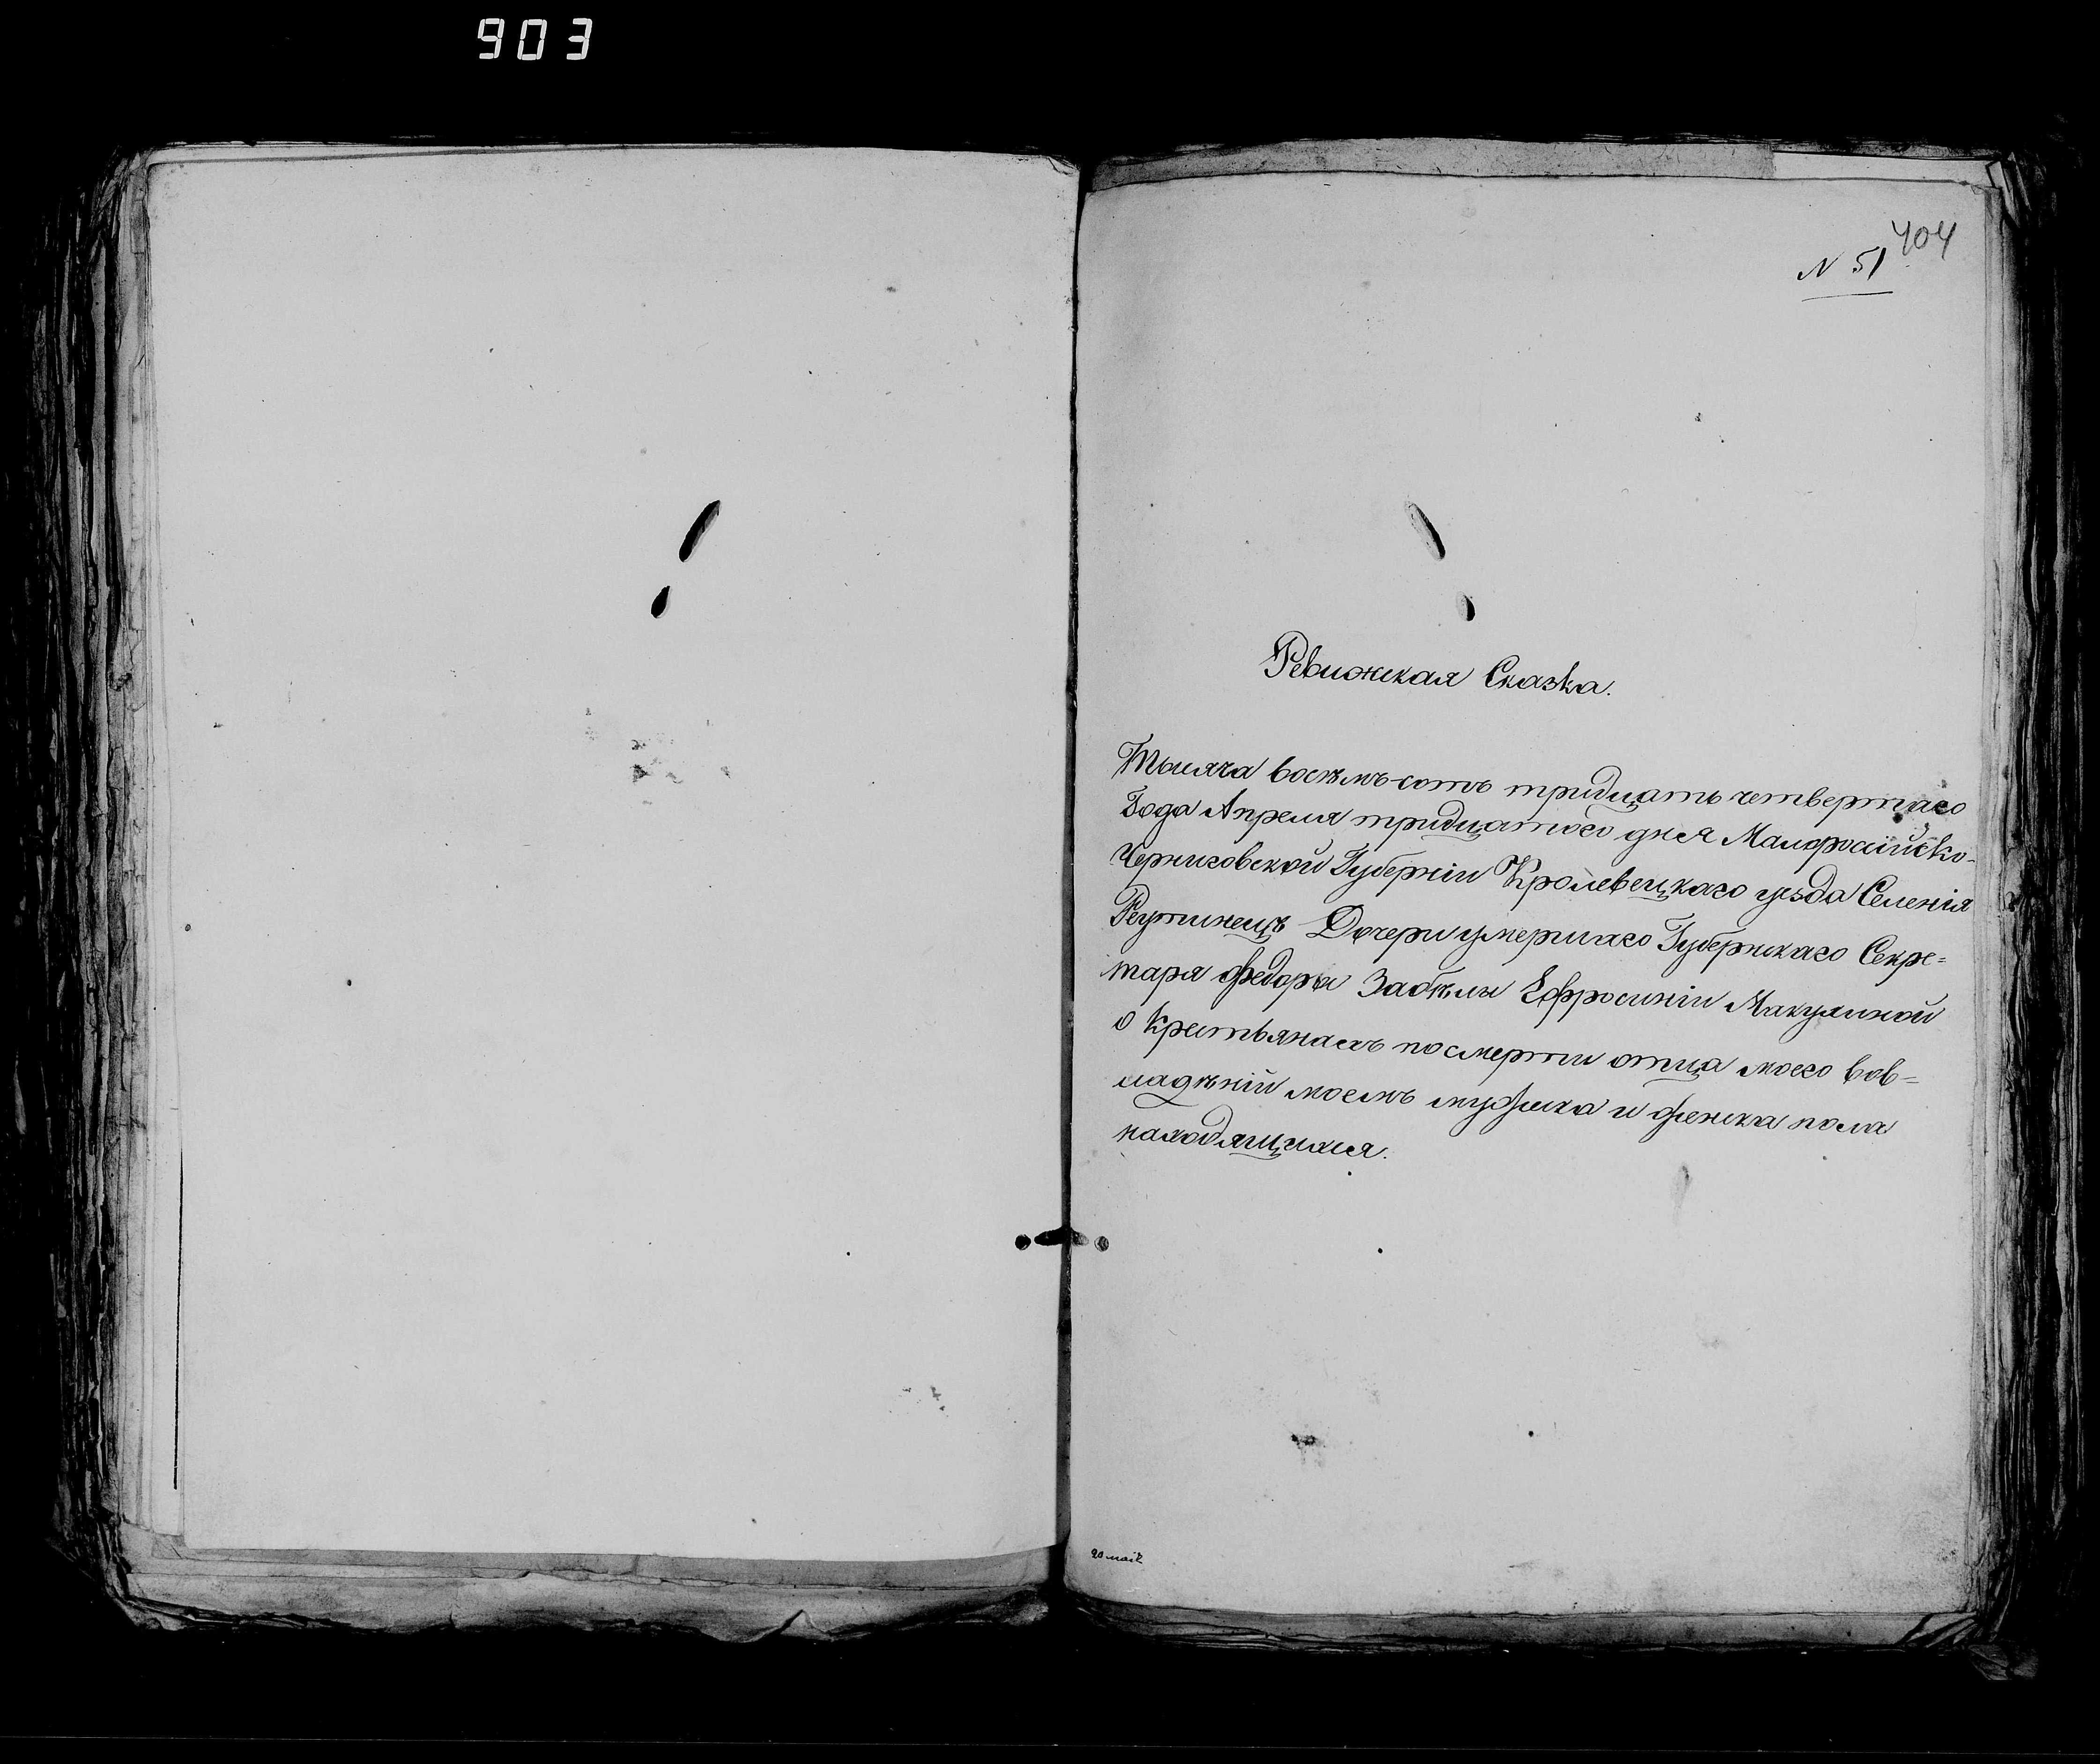 903
404
N 51
Ревижская Сказка.
Тысяча восѣмъ-сотъ тридцать четвертаго
Года Апреля тридцатого дня Малоросійско-
Черниговской Губерніи Кролевецкаго уезда Селенія
Реутинецъ Дочери умершаго Губернскаго Секре=
таря Федора Забѣлы Ефросиніи Макухиной
о Крестьянахъ посмерти отца моего вов=
ладѣніи моемъ мужеска и женска пола
находящихся.